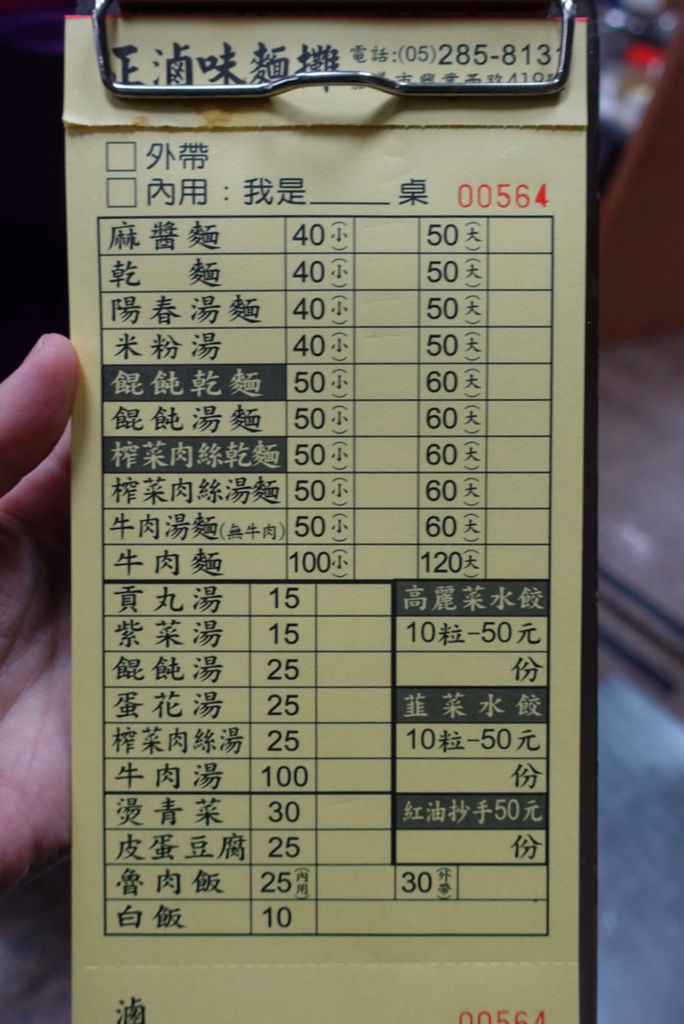 正滷味麵攤 電話:(05)285-8131
市興業西路419號
□外帶
□內用：我是_____桌 00564
麻醬麵 40(小) 50(大)
乾 麵 40(小) 50(大)
陽春湯麵 40(小) 50(大)
米粉湯 40(小) 50(大)
餛飩乾麵 50(小) 60(大)
餛飩湯麵 50(小) 60(大)
榨菜肉絲乾麵 50(小) 60(大)
榨菜肉絲湯麵 50(小) 60(大)
牛肉湯麵(無牛肉) 50(小) 60(大)
牛肉麵 100(小) 120(大)
貢丸湯 15 高麗菜水餃
紫菜湯 15 10粒-50元
餛飩湯 25 份
蛋花湯 25 韭菜水餃
榨菜肉絲湯 25 10粒-50元
牛肉湯 100 份
燙青菜 30 紅油抄手50元
皮蛋豆腐 25 份
魯肉飯 25(內用) 30(外帶)
白飯 10
滷 00564